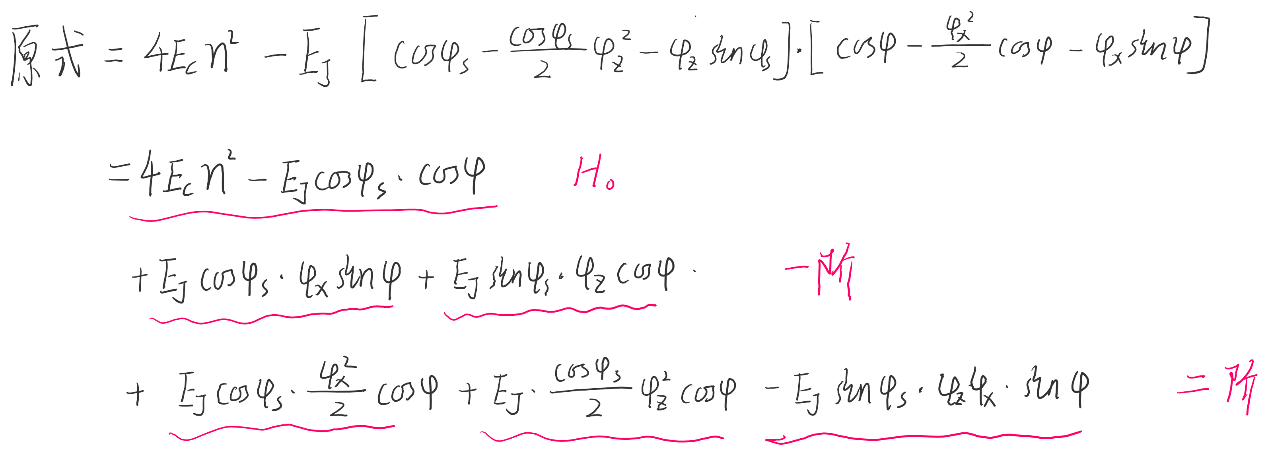 原式 = 4E_c n² - E_J [cosφ_s - \frac{cosφ_s}{2} φ_z² - φ_z sinφ_s]·[cosφ - \frac{φ_x²}{2} cosφ - φ_x sinφ]
= 4E_c n² - E_J cosφ_s · cosφ H₀
+ E_J cosφ_s · φ_x sinφ + E_J sinφ_s · φ_z cosφ · 一阶
+ E_J cosφ_s · \frac{φ_x²}{2} cosφ + E_J · \frac{cosφ_s}{2} φ_z² cosφ - E_J sinφ_s · φ_z φ_x · sinφ 二阶